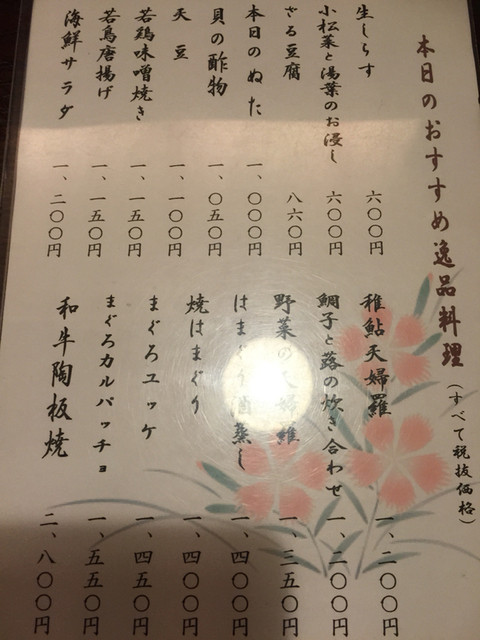 本日のおすすめ逸品料理
(すべて税抜価格)
生しらす 六〇〇円
小松菜と湯葉のお浸し 六〇〇円
ざる豆腐 八六〇円
本日のぬた 一、〇〇〇円
貝の酢物 一、〇五〇円
天豆 一、一〇〇円
若鶏味噌焼き 一、一五〇円
若鳥唐揚げ 一、一五〇円
海鮮サラダ 一、二〇〇円
稚鮎天婦羅 一、二〇〇円
鯛子と蕗の炊き合わせ 一、二〇〇円
野菜の天婦羅 一、三五〇円
はまぐり酒蒸し 一、四〇〇円
焼はまぐり 一、四〇〇円
まぐろユッケ 一、四五〇円
まぐろカルパッチョ 一、五五〇円
和牛陶板焼 二、八〇〇円